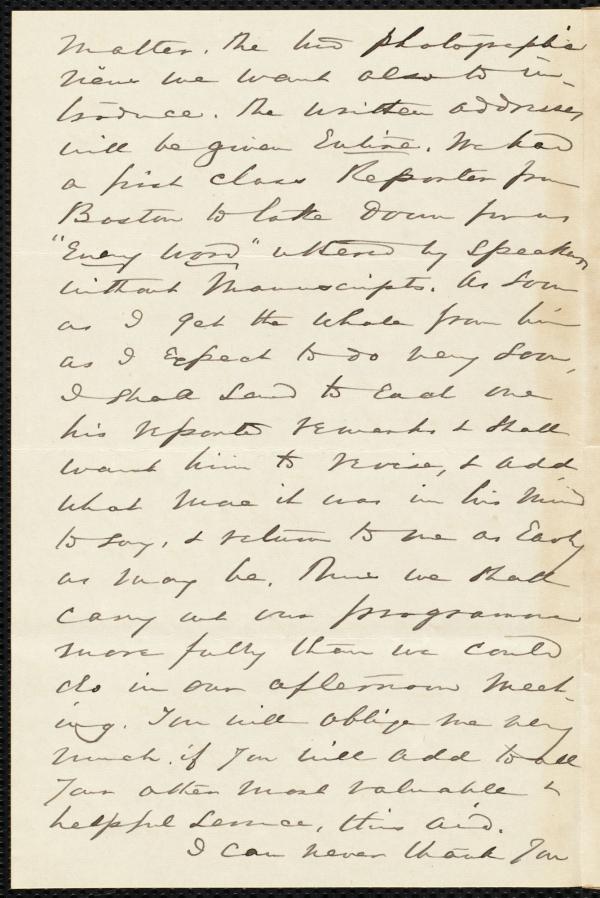 matter. The two photographic
views we want also to in-
troduce. The written addresses
will be given Entire. We had
a first class Reporter from
Boston to take Down for us
"Every word" uttered by Speakers
without Manuscripts. As soon
as I get the whole from him
as I Expect to do very soon,
I shall send to Each one
his reported remarks & shall
want him to revise, & add,
what more it was in his mind
to say, & return to me as Early
as may be. Thus we shall
carry out our programme
more fully than we could
do in our afternoon meet-
ing. You will oblige me very
much if you will add to all
your other most valuable &
helpful service, this aid.
I can never thank you